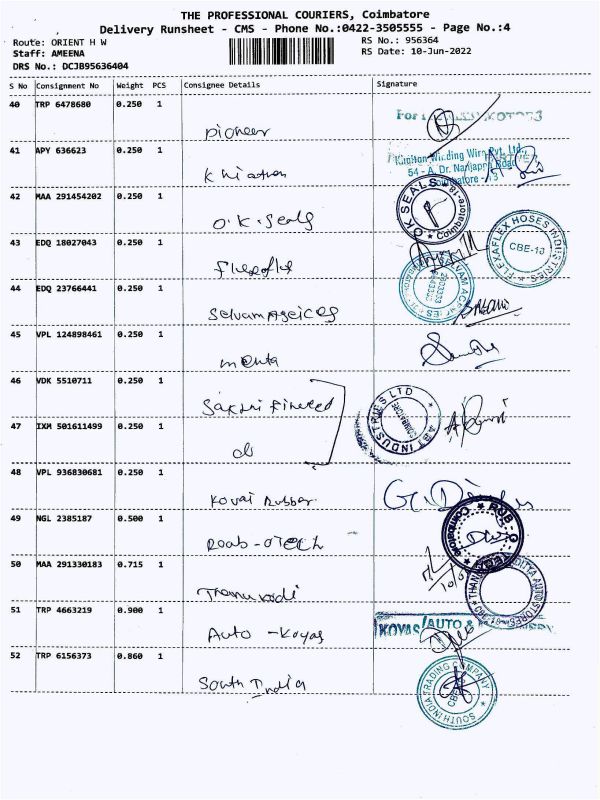 THE PROFESSIONAL COURIERS, Coimbatore
Delivery Runsheet - CMS - Phone No.:0422-3505555 - Page No.:4
Route: ORIENT H W
RS No.: 956364
Staff: AMEENA
RS Date: 10-Jun-2022
DRS No.: DCJB95636404
S No Consignment No Weight PCS Consignee Details Signature
40 TRP 6478680 0.250 1
For
Pioneer
41 APY 636623 0.250 1
Winding Wire Pvt. Ltd.,
54 - A, Dr. Nanjappa Road
Coimbatore - 18
42 MAA 291454202 0.250 1
OK SEALS
Coimbatore-18
O.K. Seals
43 EDQ 18027043 0.250 1
FLEXAFLEX HOSES INDUSTRIES
CBE-18
44 EDQ 23766441 0.250 1
Selvam Ageices
45 VPL 124898461 0.250 1
46 VDK 5510711 0.250 1
INDUSTRIES LTD
COIMBATORE
47 IXM 501611499 0.250 1
do
48 VPL 936830681 0.250 1
Kovai Rubber
49 NGL 2385187 0.500 1
ROB-O
COIMBATORE
Roab-oTech
50 MAA 291330183 0.715 1
ADITYA AUTO STORES
51 TRP 4663219 0.900 1
KOYAS AUTO &
Auto - Koyas
52 TRP 6156373 0.860 1
SOUTH INDIA TRADING COMPANY
CBE-18
South India